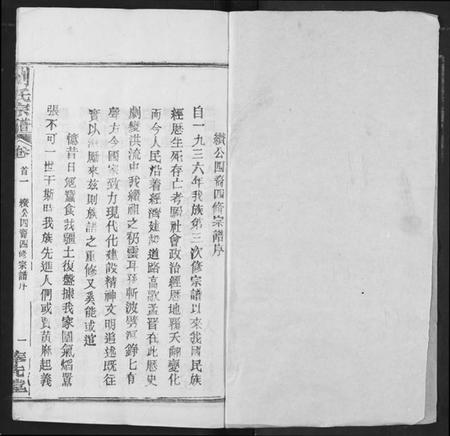 續公四裔四修宗譜序
自一九三六年我族第三次修宗譜以來我國民族
經歷生死存亡考驗社會政治經歷地覆天翻變化
而今人民沿着經濟建設道路高歌孟晉在此歷史
劇變洪流中我續祖之礽雲耳孫斬波劈浪錚七有
聲方今國家致力現代化建設精神文明追述既往
實以啟歷來兹則族譜之重修又奚能或逭
憶昔日寇蠶食我疆土復盤據我家園氣熖囂
張不可一世于斯時我族先進人們或貿黃麻起義
劉氏宗譜
卷首一
續公四裔四修宗譜序
一
堂